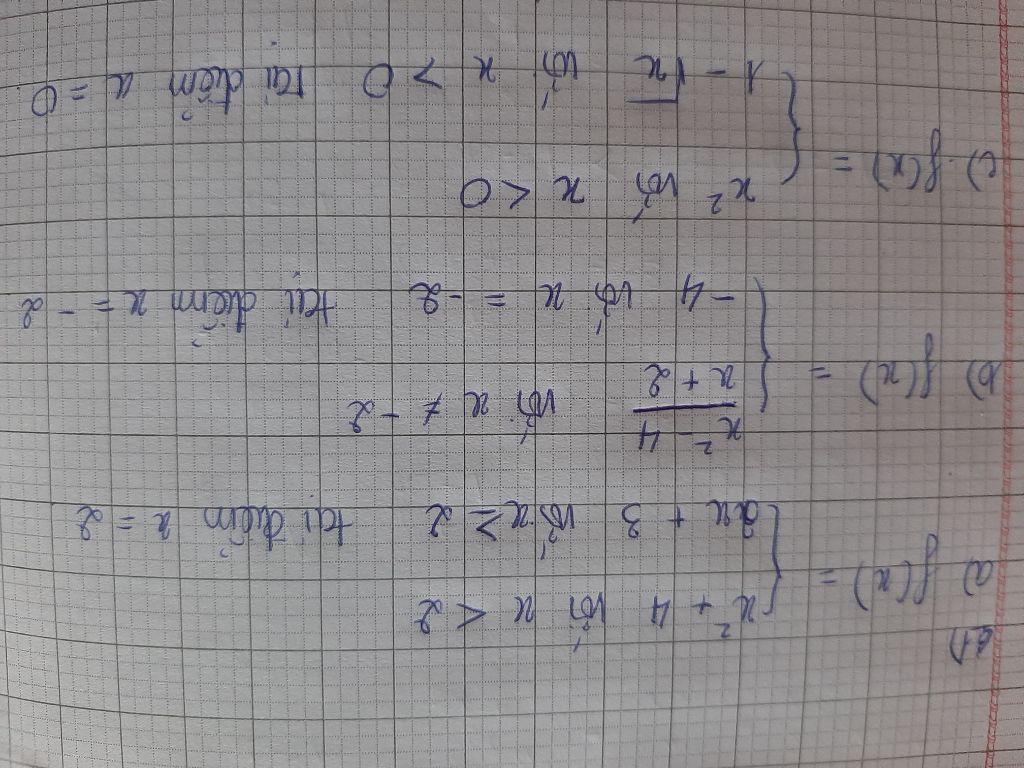 21)
a) f(x) = { x² + 4 với x < 2
2x + 3 với x ≥ 2 tại điểm x = 2
b) f(x) = { x² - 4 / x + 2 với x ≠ - 2
- 4 với x = - 2 tại điểm x = - 2
c) f(x) = { x² với x < 0
1 - √x với x > 0 tại điểm a = 0